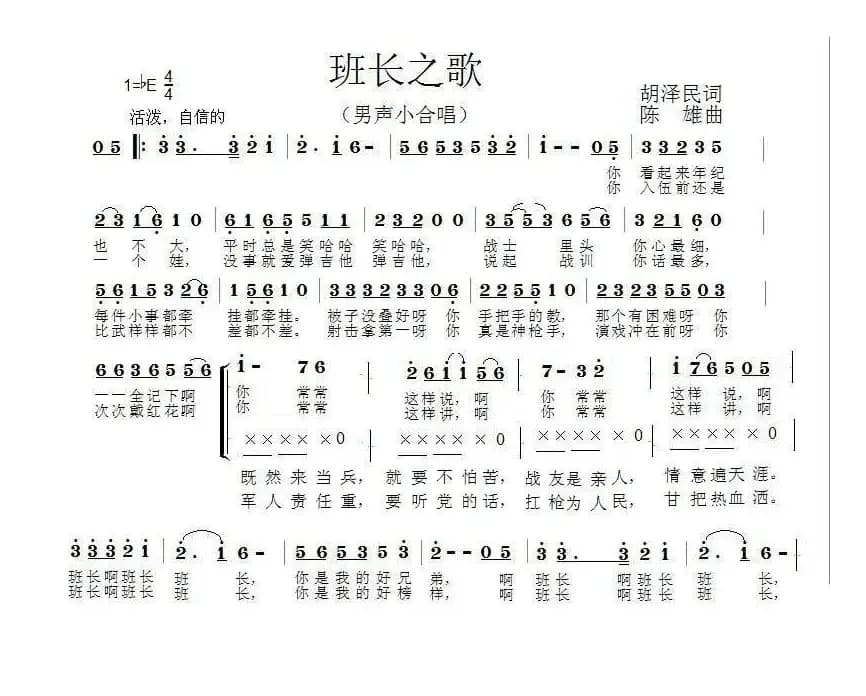 班长之歌
1=♭E 4/4
胡泽民词
活泼，自信的
（男声小合唱）
陈 雄曲
0 5 ‖: 3 3. 3 2 1 | 2. 1 6 - | 5 6 5 3 5 3 2 | 1 - - 0 5 | 3 3 2 3 5 |
你 看起来年纪
你 入伍前还是
2 3 1 6 1 0 | 6 1 6 5 5 1 1 | 2 3 2 0 0 | 3 5 5 3 6 5 6 | 3 2 1 6 0 |
也 不 大， 平时总是笑哈哈 笑哈哈， 战士 里头 你心最细，
一 个 娃， 没事就爱弹吉他 弹吉他， 说起 战训 你话最多，
5 6 1 5 3 2 6 | 1 5 6 1 0 | 3 3 3 2 3 3 0 6 | 2 2 5 5 1 0 | 2 3 2 3 5 5 0 3 |
每件小事都牵 挂都牵挂。 被子没叠好呀 你 手把手的教， 那个有困难呀 你
比武样样都不 差都不差。 射击拿第一呀 你 真是神枪手， 演戏冲在前呀 你
6 6 3 6 5 5 6 | 1 - 7 6 | 2 6 1 1 5 6 | 7 - 3 2 | 1 7 6 5 0 5 |
一一全记下啊 你 常常 这样说，啊 你 常常 这样 说，啊
次次戴红花啊 你 常常 这样讲，啊 你 常常 这样 讲，啊
× × × × × 0 | × × × × × 0 | × × × × × 0 | × × × × × 0
既然来当兵， 就要不怕苦， 战友是亲人， 情意遍天涯。
军人责任重， 要听党的话， 扛枪为人民， 甘把热血洒。
3 3 3 2 1 | 2. 1 6 - | 5 6 5 3 5 3 | 2 - - 0 5 | 3 3. 3 2 1 | 2. 1 6 - |
班长啊班长 班 长， 你是我的好兄 弟， 啊 班长 啊班长 班 长，
班长啊班长 班 长， 你是我的好榜 样， 啊 班长 啊班长 班 长，